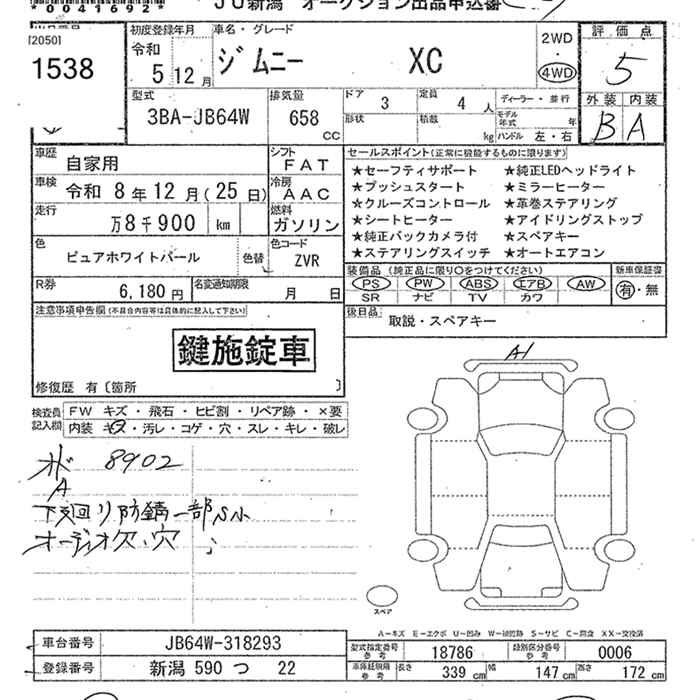 *0041692*
JU新潟 オークション出品申込書
[2050]
1538
初度登録年月
令和
5年12月
車名・グレード
ジムニー XC
2WD
・
4WD
評価点
5
外装 内装
B A
型式
3BA-JB64W
排気量
658
CC
ドア
3
定員
4 人
形状
積載
kg
ディーラー・並行
モデル年式 年
ハンドル 左・右
車歴
自家用
シフト
FAT
車検
令和 8年12月(25日)
冷房
AAC
走行
万8千900 km
燃料
ガソリン
色
ピュアホワイトパール
色替
色コード
ZVR
R券
6,180円
名変通知期限
月 日
セールスポイント(正常に機能するものに限ります)
★セーフティサポート ★純正LEDヘッドライト
★プッシュスタート ★ミラーヒーター
★クルーズコントロール ★革巻ステアリング
★シートヒーター ★アイドリングストップ
★純正バックカメラ付 ★スペアキー
★ステアリングスイッチ ★オートエアコン
装備品(純正品に限り○をつけてください)
PS PW ABS エアB AW
SR ナビ TV カワ
新車保証書
有・無
後日品
取説・スペアキー
注意事項申告欄(不具合内容等は具体的に記入して下さい)
鍵施錠車
修復歴 有〔箇所 〕
検査員記入欄
FW キズ・飛石・ヒビ割・リペア跡・×要
内装 キズ・汚レ・コゲ・穴・スレ・キレ・破レ
オド 8902
A
下廻り防錆一部サ小
オーディオ欠、穴
A1
スペア
A-キズ E-エクボ U-凹み W-補修跡 S-サビ C-腐食 XX-交換済
車台番号
JB64W-318293
登録番号
新潟 590 つ 22
型式指定番号
参考
18786
類別区分番号
参考
0006
車庫証明用
参考
長さ 339 cm 幅 147 cm 高さ 172 cm